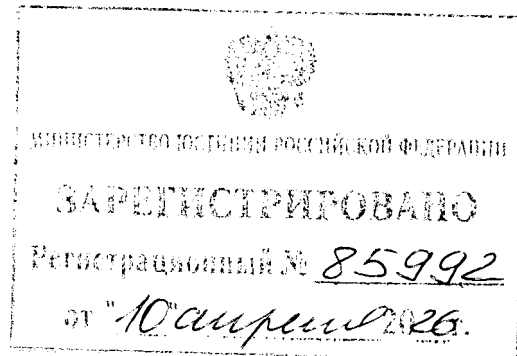 МИНИСТЕРСТВО ЮСТИЦИИ РОССИЙСКОЙ ФЕДЕРАЦИИ
ЗАРЕГИСТРИРОВАНО
Регистрационный № 85992
от "10" апреля 2026г.